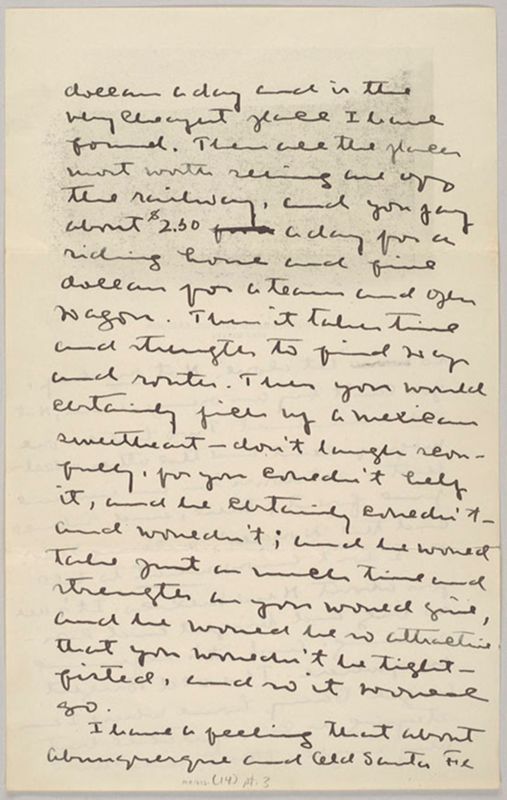 dollars a day and is the
very cheapest place I have
found. Then all the places
most worth seeing are off
the railway, and you pay
about $2.50 a day for a
riding horse and five
dollars for a team and open
wagon. Then it takes time
and strength to find ways
and routes. Then you would
certainly pick up a mexican
sweetheart — don't laugh scorn-
fully, for you couldn't help
it, and he certainly couldn't —
and wouldn't; and he would
take just as much time and
strength as you would give,
and he would be so attractive
that you wouldn't be tight-
fisted, and so it would
go.
I have a feeling that about
Albuquerque and Old Santa Fé
(14) pt. 3